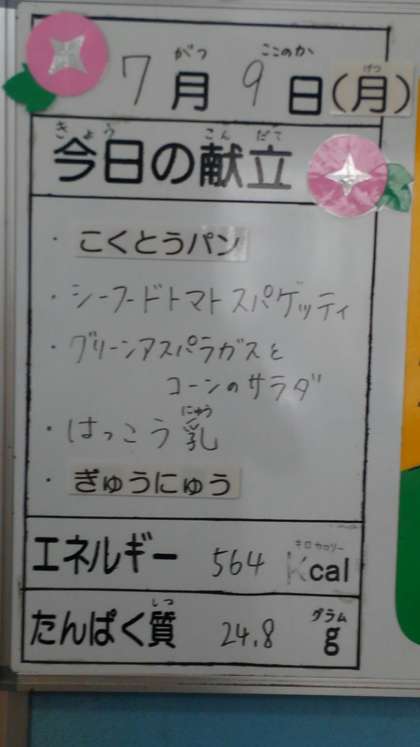 がつ ここのか げつ
7月9日(月)
きょう こんだて
今日の献立
・こくとうパン
・シーフードトマトスパゲッティ
・グリーンアスパラガスと
コーンのサラダ
にゅう
・はっこう乳
・ぎゅうにゅう
キロカロリー
エネルギー 564 Kcal
しつ グラム
たんぱく質 24.8 g